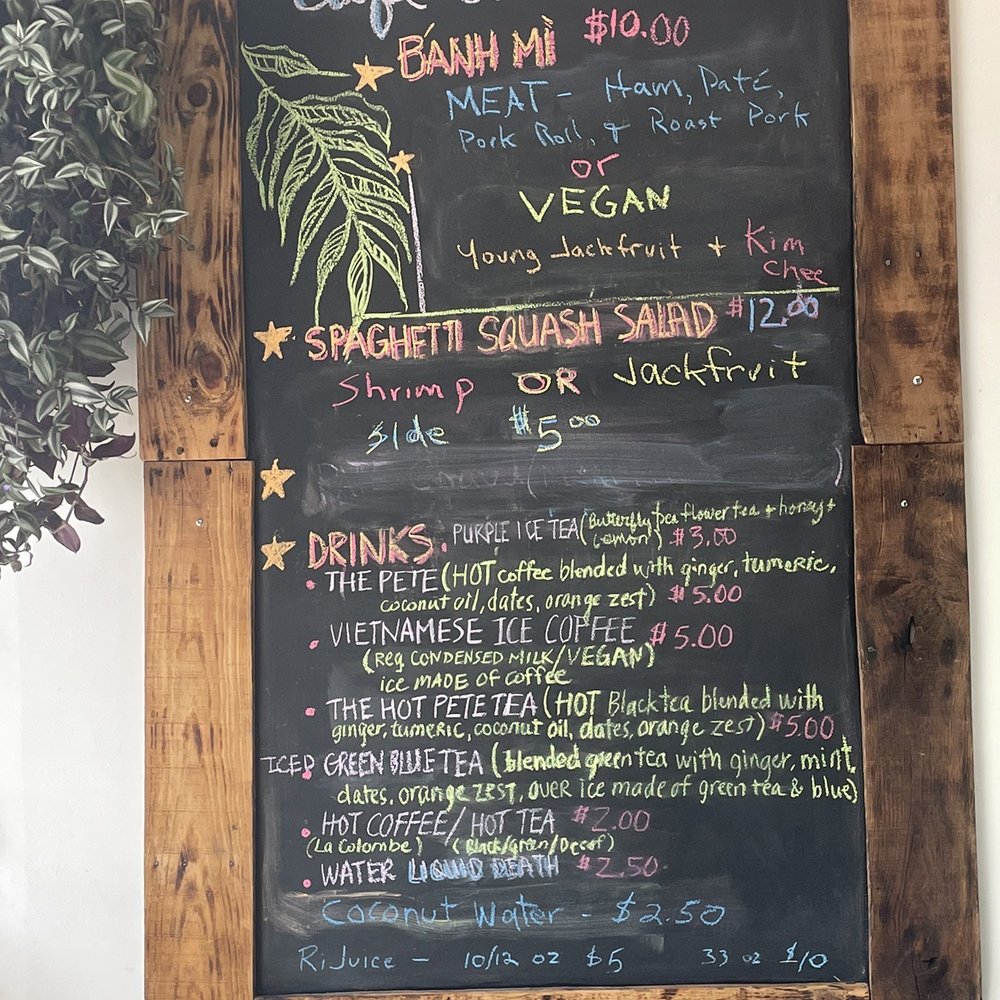 BÁNH MÌ $10.00
MEAT - Ham, Paté,
Pork Roll, & Roast Pork
or
VEGAN
Young Jackfruit + Kim
Chee
SPAGHETTI SQUASH SALAD $12.00
Shrimp OR Jackfruit
Side $5.00
DRINKS • PURPLE ICE TEA (Butterfly pea flower tea + honey +
Lemon) $3.00
• THE PETE (HOT coffee blended with ginger, tumeric,
coconut oil, dates, orange zest) $5.00
• VIETNAMESE ICE COFFEE $5.00
(Reg CONDENSED MILK/VEGAN)
ice MADE OF coffee
• THE HOT PETE TEA (HOT Black tea blended with
ginger, tumeric, coconut oil, dates, orange zest) $5.00
ICED • GREEN BLUE TEA (blended green tea with ginger, mint,
dates, orange zest, over ice made of green tea & blue)
• HOT COFFEE/HOT TEA $2.00
(La Colombe) (Black/Green/Decaf)
• WATER LIQUID DEATH $2.50
Coconut Water - $2.50
RiJuice - 10/12 oz $5 33 oz $10